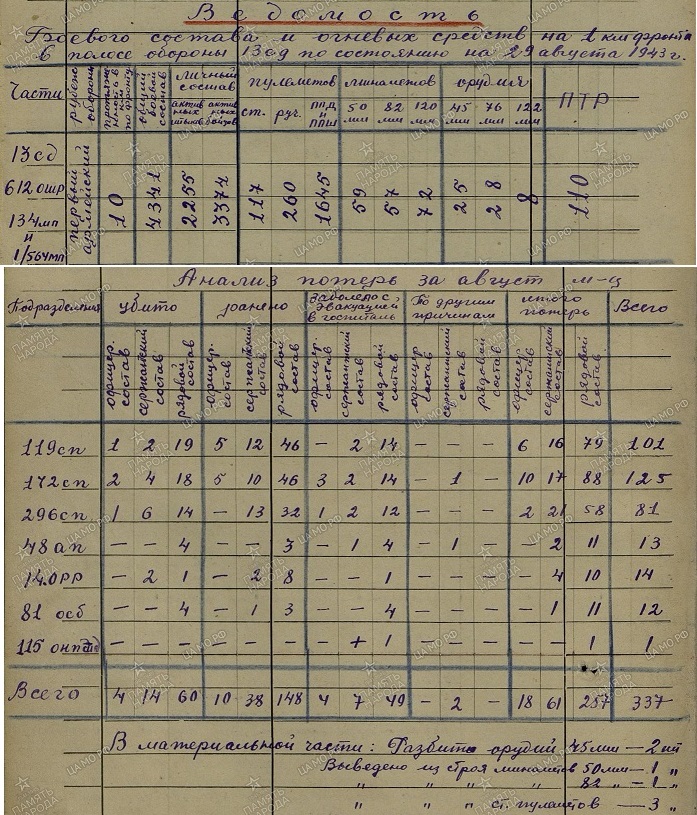 Ведомость
Боевого состава и огневых средств на 1 км фронта
в полосе обороны 13сд по состоянию на 29 августа 1943 г.
Части рубеж обороны личный состав пулеметов минометов орудия ПТР
актив ных штыков актив ных бойцов ст. руч. ППД и ППШ 50 мм 82 мм 120 мм 45 мм 76 мм 122 мм
13сд
612 ошр первый армейский 10 4341 2255 3371 117 260 1645 59 57 72 25 28 8 110
134 мп
и
1/564мп
Анализ потерь за август м-ц
Подразделения убито ранено Заболело с эвакуацией в госпиталь По другим причинам итого потерь Всего
офицер. состав сержантский состав рядовой состав офицер. состав сержантский состав рядовой состав офицер. состав сержантский состав рядовой состав офицер состав сержантский состав рядовой состав офицер состав сержантский состав рядовой состав
119сп 1 2 19 5 12 46 — 2 14 — — — 6 16 79 101
172сп 2 4 18 5 10 46 3 2 14 — 1 — 10 17 88 125
296сп 1 6 14 — 13 32 1 2 12 — — — 2 21 58 81
48 ап — — 4 — — 3 — 1 4 — 1 — — 2 11 13
14.орр — 2 1 — 2 8 — — 1 — — — — 4 10 14
81 осб — — 4 — 1 3 — — 4 — — — — 1 11 12
115 — — — — — — — + 1 — — — — — 1 1
Всего 4 14 60 10 38 148 4 7 49 — 2 — 18 61 257 337
В материальной части: Разбито орудий 45мм — 2 шт
Выведено из строя минометов 50мм — 1 "
" " " " 82 " — 1 "
" " " ст. пулеметов — 3 "